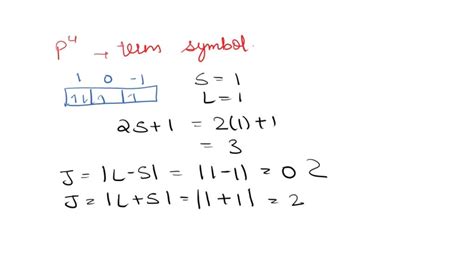 p⁴ → term symbol.
1 0 -1
1L 1 1
S = 1
L = 1
2S+1 = 2(1)+1
= 3
J = |L-S| = |1-1| = 0 2
J = |L+S| = |1+1| = 2